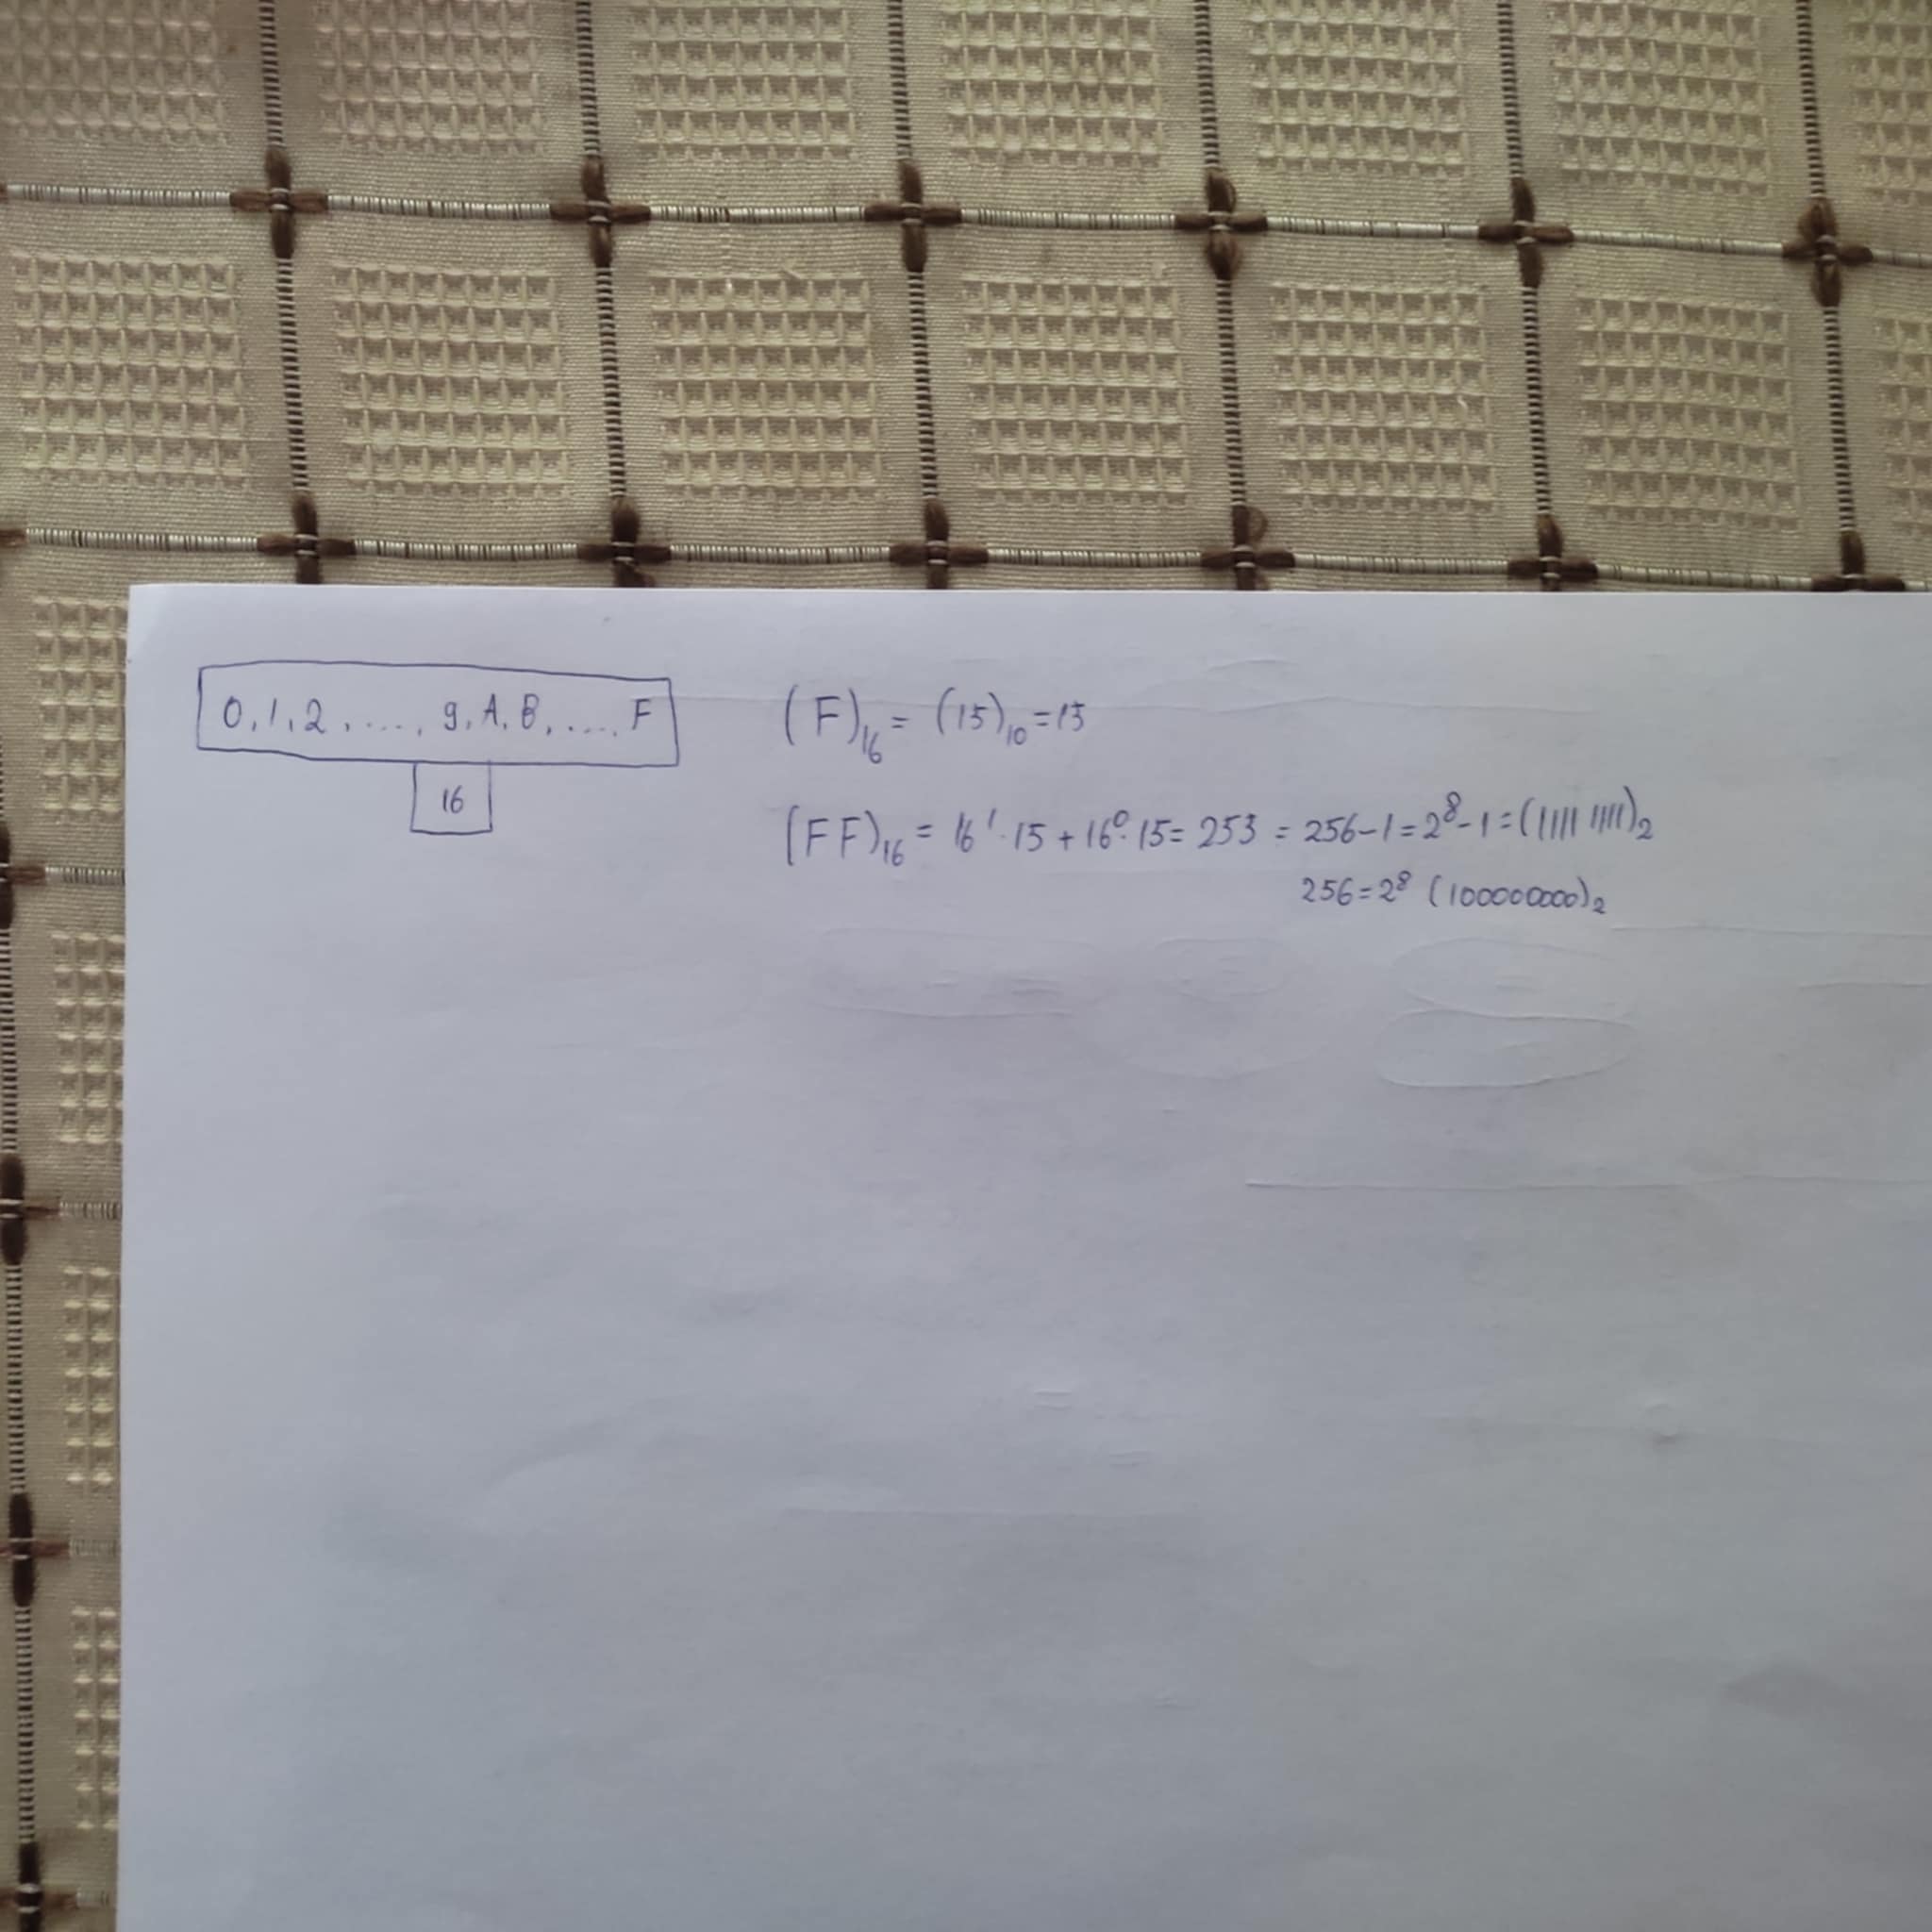 0, 1, 2, ...., 9, A, B, ...., F
16
(F)₁₆ = (15)₁₀ = 15
(FF)₁₆ = 16¹·15 + 16⁰·15 = 253 = 256-1 = 2⁸-1 = (1111 1111)₂
256 = 2⁸ (100000000)₂